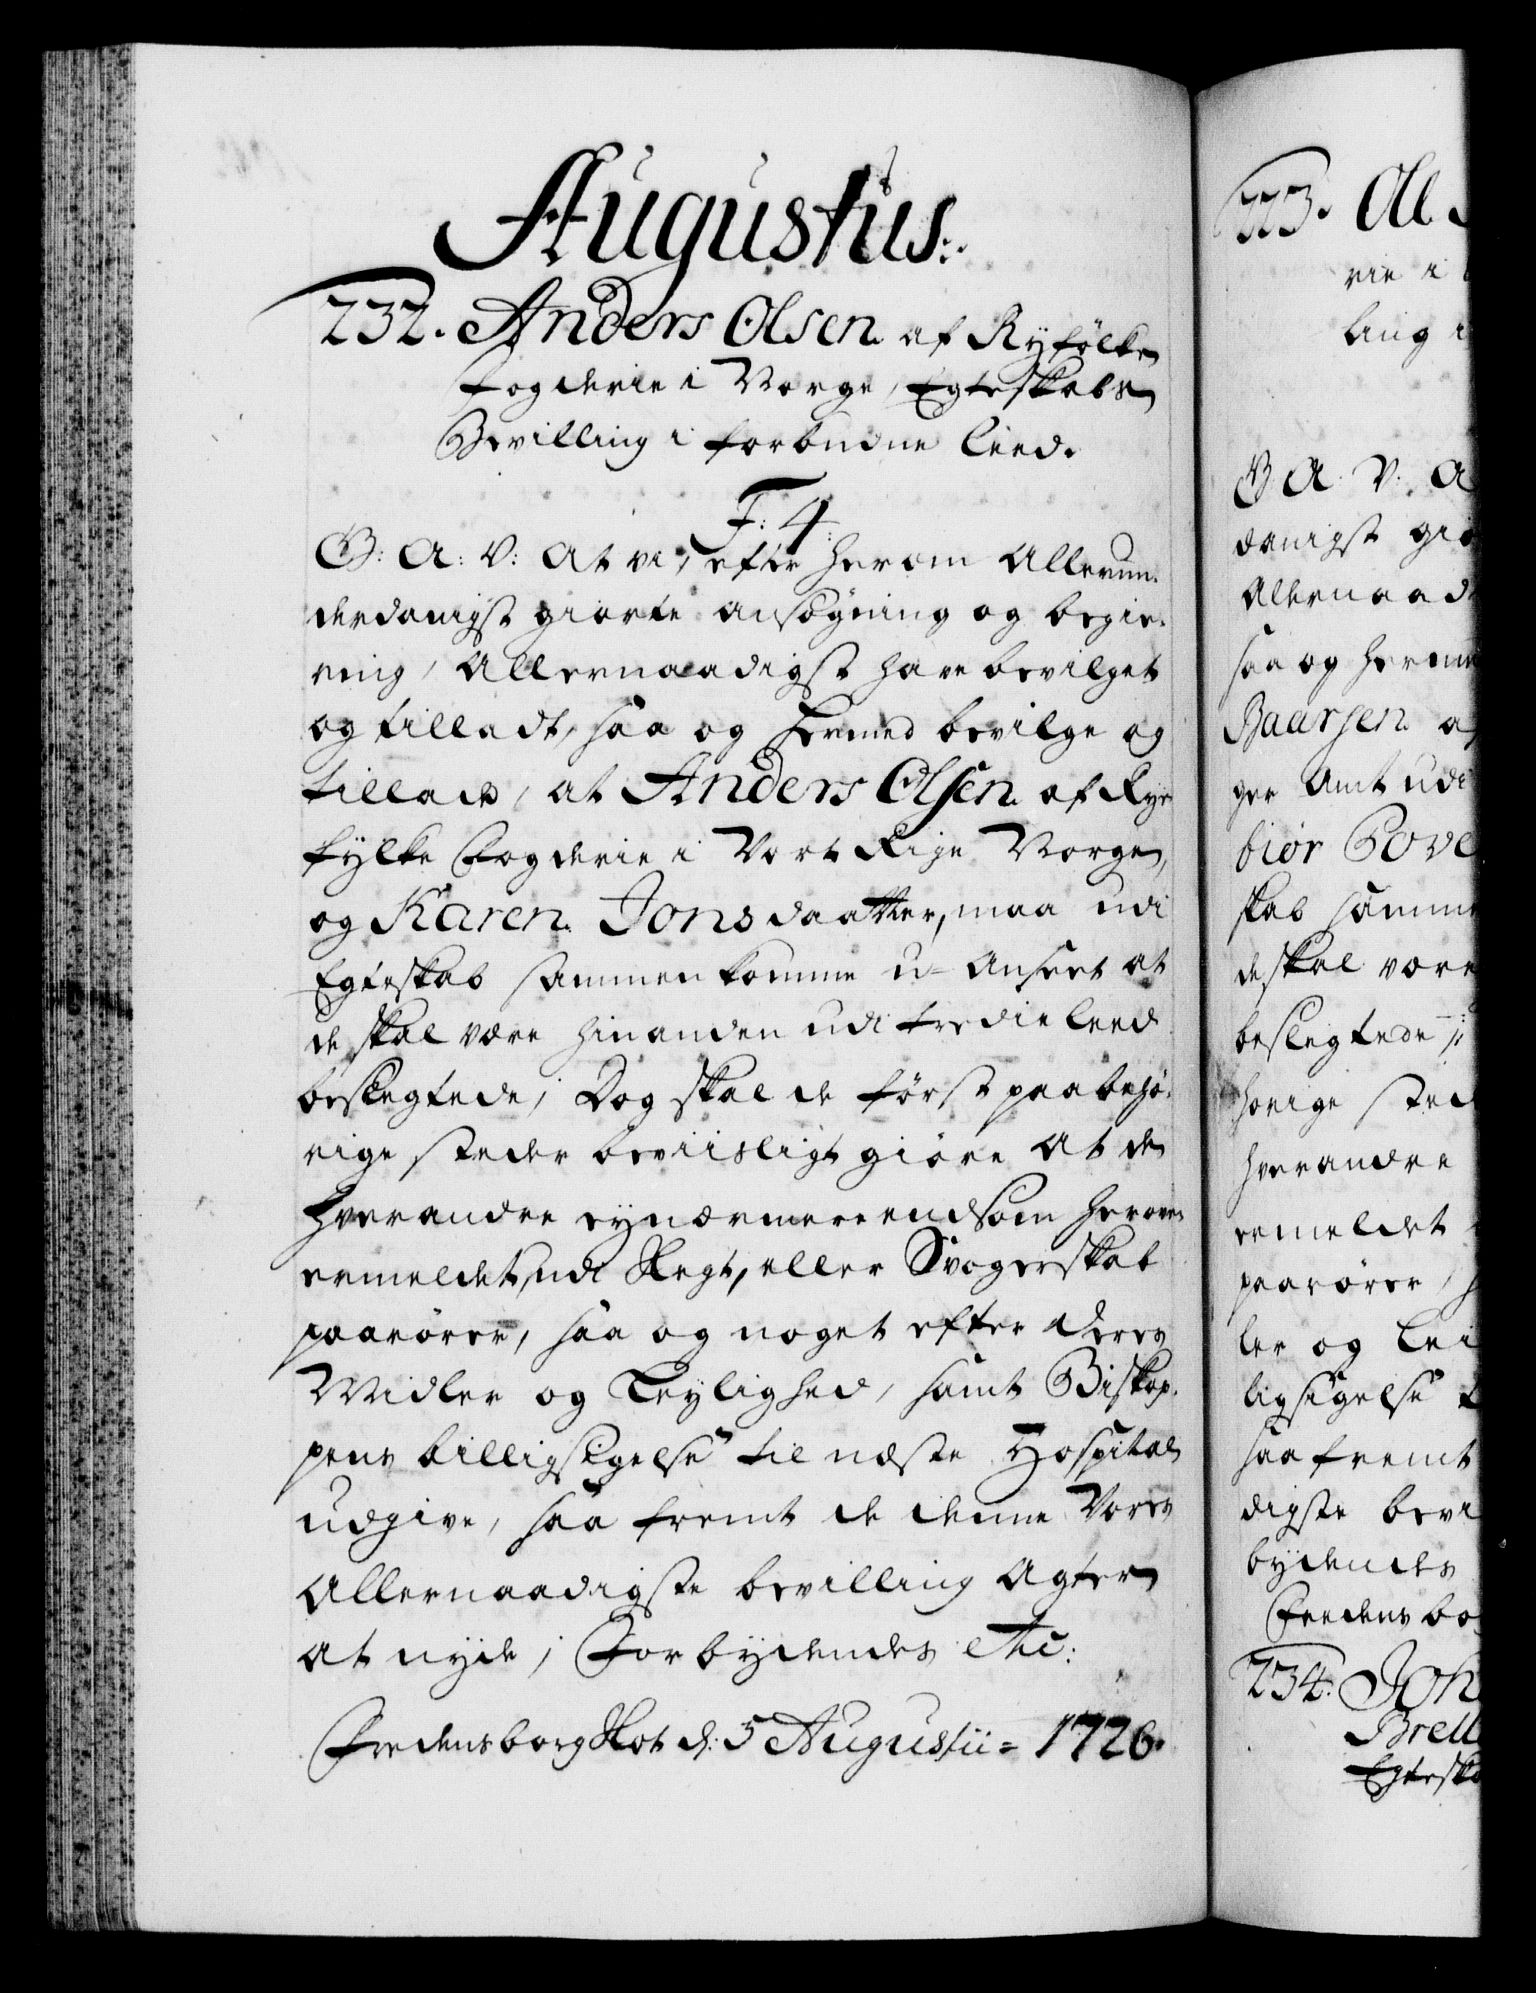 Augustus:
232. Anders Olsen af Ryfølke
fogderie i Norge, Egteskabs
Bevilling i forbudne Leed.
F: 4.
G: A: V: At vi, efter herom Allerun-
derdanigst giorte ansøgning og begie-
ring, Allernaadigst have bevilget
og tilladt, saa og hermed bevilge og
tillade, at Anders Olsen af Rye-
fylke Fogderie i Vort Rige Norge,
og Karen Jons daatter, maa udi
Egteskab sammenkomme u-anseet at
de skal være hinanden udi tredie leed
beslegtede; Dog skal de først paa behø-
rige steder beviisligt giøre at de
hverandre ey nærmere end som heroven
ermeldet, udi Slegt, eller Svogerskab
paarører, saa og noget efter deres
Midler og Leylighed, samt Biskop-
pens billigsigelse til næste Hospital
udgive, saa fremt de denne Vores
Allernaadigste bevilling agter
at nyde; Forbydendes etc:
Fredensborg Slot d: 5 Augustii = 1726.
Ole
rie i
ling i
G. A. V. A
danigst gio
Allernaad
saa og herme
Baarsen af
ger Amt udi
biør Pove
skab samme
de skal være
beslegtede
hørige sted
hverandre
ermeldet
paarører,
ler og Lei
ligsigelse t
saa fremt
digste bevi
bydendes
Fredensbo
234. Joh
Brell
Egteska